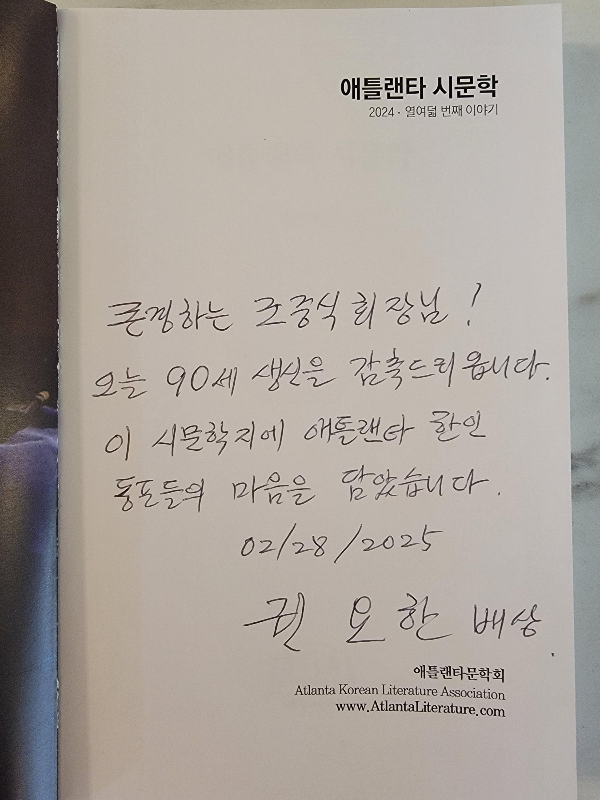 애틀랜타 시문학
2024 · 열여덟 번째 이야기
존경하는 조중식 회장님!
오늘 90세 생신을 감축드리옵니다.
이 시문학지에 애틀랜타 한인
동포들의 마음을 담았습니다.
02/28/2025
권 오 한 배상
애틀랜타문학회
Atlanta Korean Literature Association
www.AtlantaLiterature.com